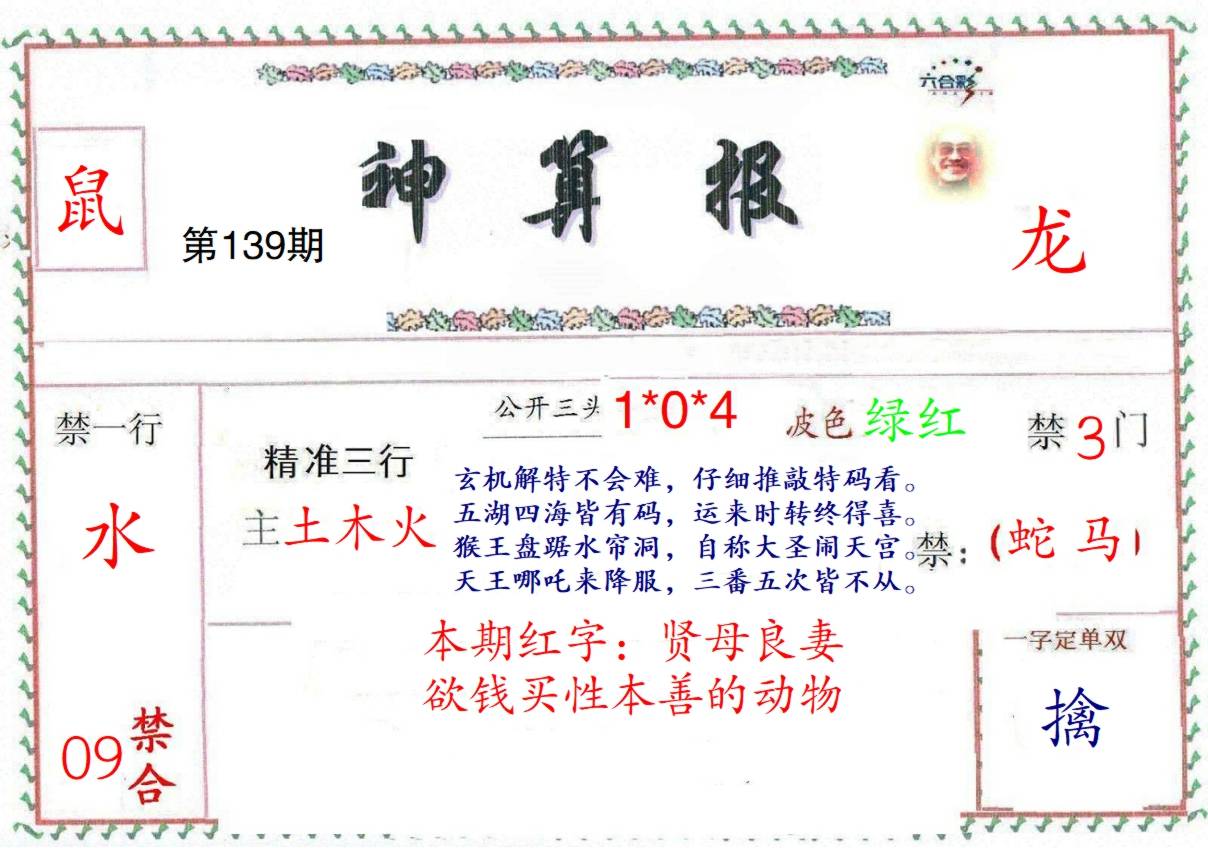 六合彩
神算报
鼠
第139期
龙
禁一行
水
09
禁合
精准三行
主土木火
公开三头 1*0*4
波色 绿红
玄机解特不会难，仔细推敲特码看。
五湖四海皆有码，运来时转终得喜。
猴王盘踞水帘洞，自称大圣闹天宫。
天王哪吒来降服，三番五次皆不从。
禁3门
禁：（蛇 马）
本期红字：贤母良妻
欲钱买性本善的动物
一字定单双
擒